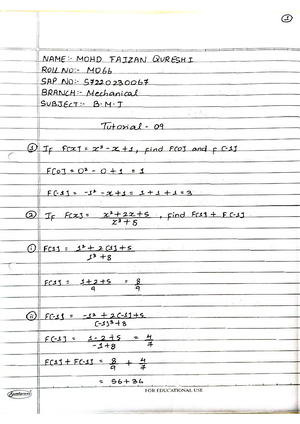 1
NAME:- MOHD FAIZAN QURESHI
ROLL NO:- MD66
SAP NO:- 57220230067
BRANCH:- Mechanical
SUBJECT:- B.M.I
Tutorial - 09
① If F[x] = x² - x + 1, find F[0] and F[-1]
F[0] = 0² - 0 + 1 = 1
F[-1] = -1² - x + 1 = 1 + 1 + 1 = 3
② If F[x] = x² + 2x + 5 / x³ + 8, find F[1] + F[-1]
ⓘ F[1] = 1² + 2[1] + 5 / 1³ + 8
F[1] = 1 + 2 + 5 / 9 = 8 / 9
ⓘⓘ F[-1] = -1² + 2[-1] + 5 / [-1]³ + 8
F[-1] = 1 - 2 + 5 / -1 + 8 = 4 / 7
F[1] + F[-1] = 8 / 9 + 4 / 7
= 56 + 36
FOR EDUCATIONAL USE